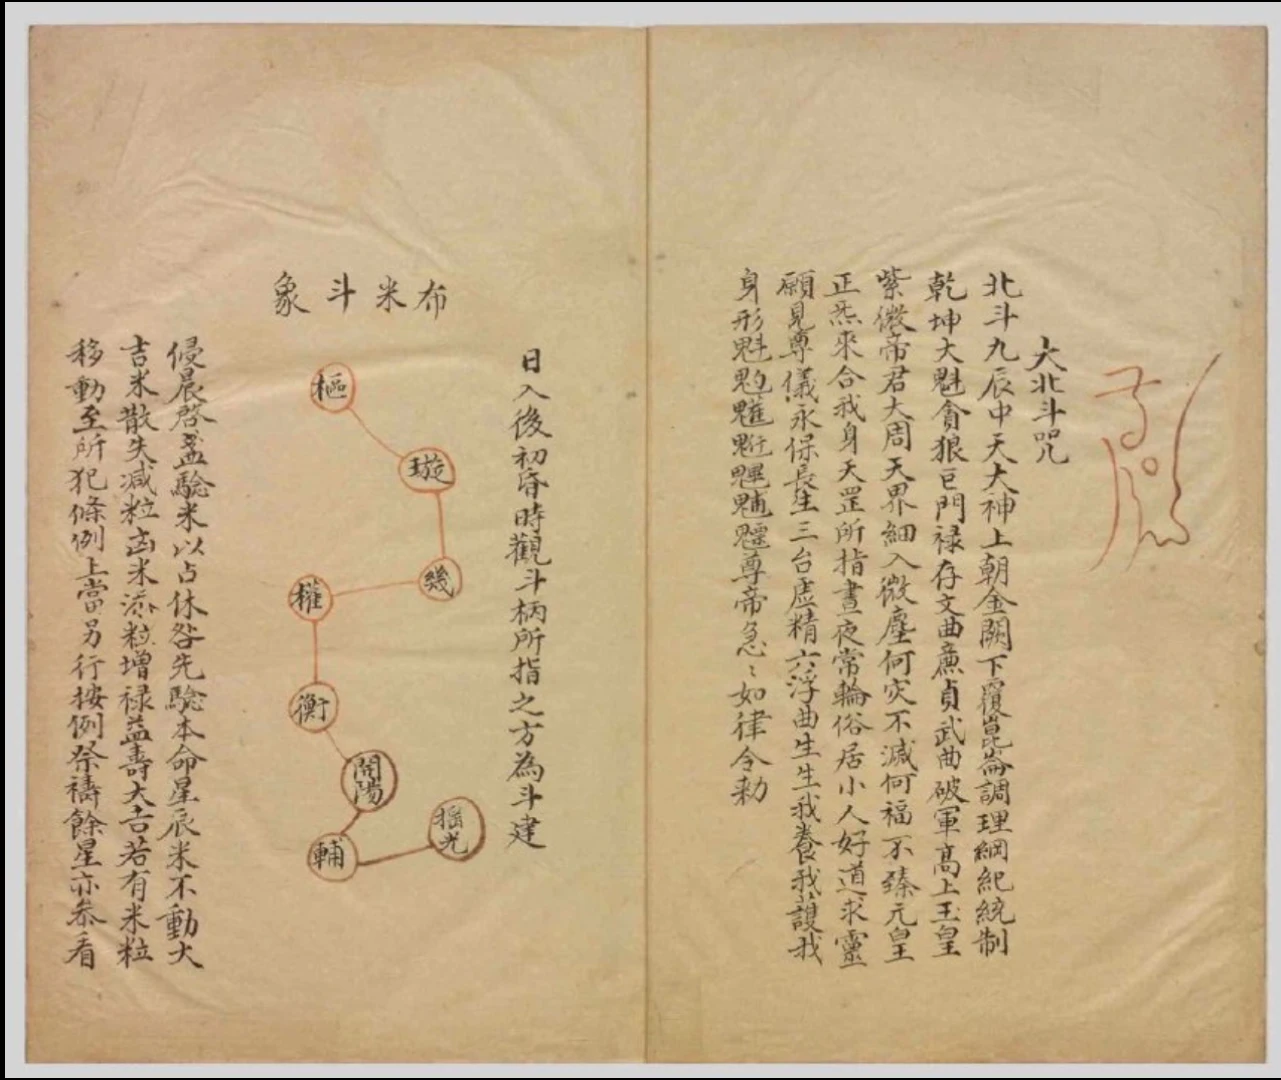 大北斗咒
北斗九辰中天大神上朝金闕下覆崑崙調理綱紀統制
乾坤大魁貪狼巨門禄存文曲亷貞武曲破軍髙上玉皇
紫微帝君大周天界細入微塵何灾不滅何福不臻元皇
正炁來合我身天罡所指晝夜常輪俗居小人好道求靈
願見尊儀永保長生三台虚精六淳曲生生我養我護我
身形魁𩲃魓魒尊帝急〻如律令勑
布米斗象
日入後初昏時觀斗柄所指之方為斗建
樞
璇
幾
權
衡
開陽
輔
揺光
侵晨啓盖驗米以占休咎先驗本命星辰米不動大
吉米散失减粒凶米添粒增禄益壽大吉若有米粒
移動至所犯條例上當另行按例祭禱餘星亦叅看